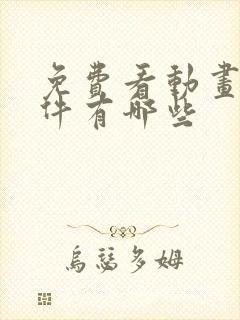 免費看動畫
件有哪些
烏瑟多姆